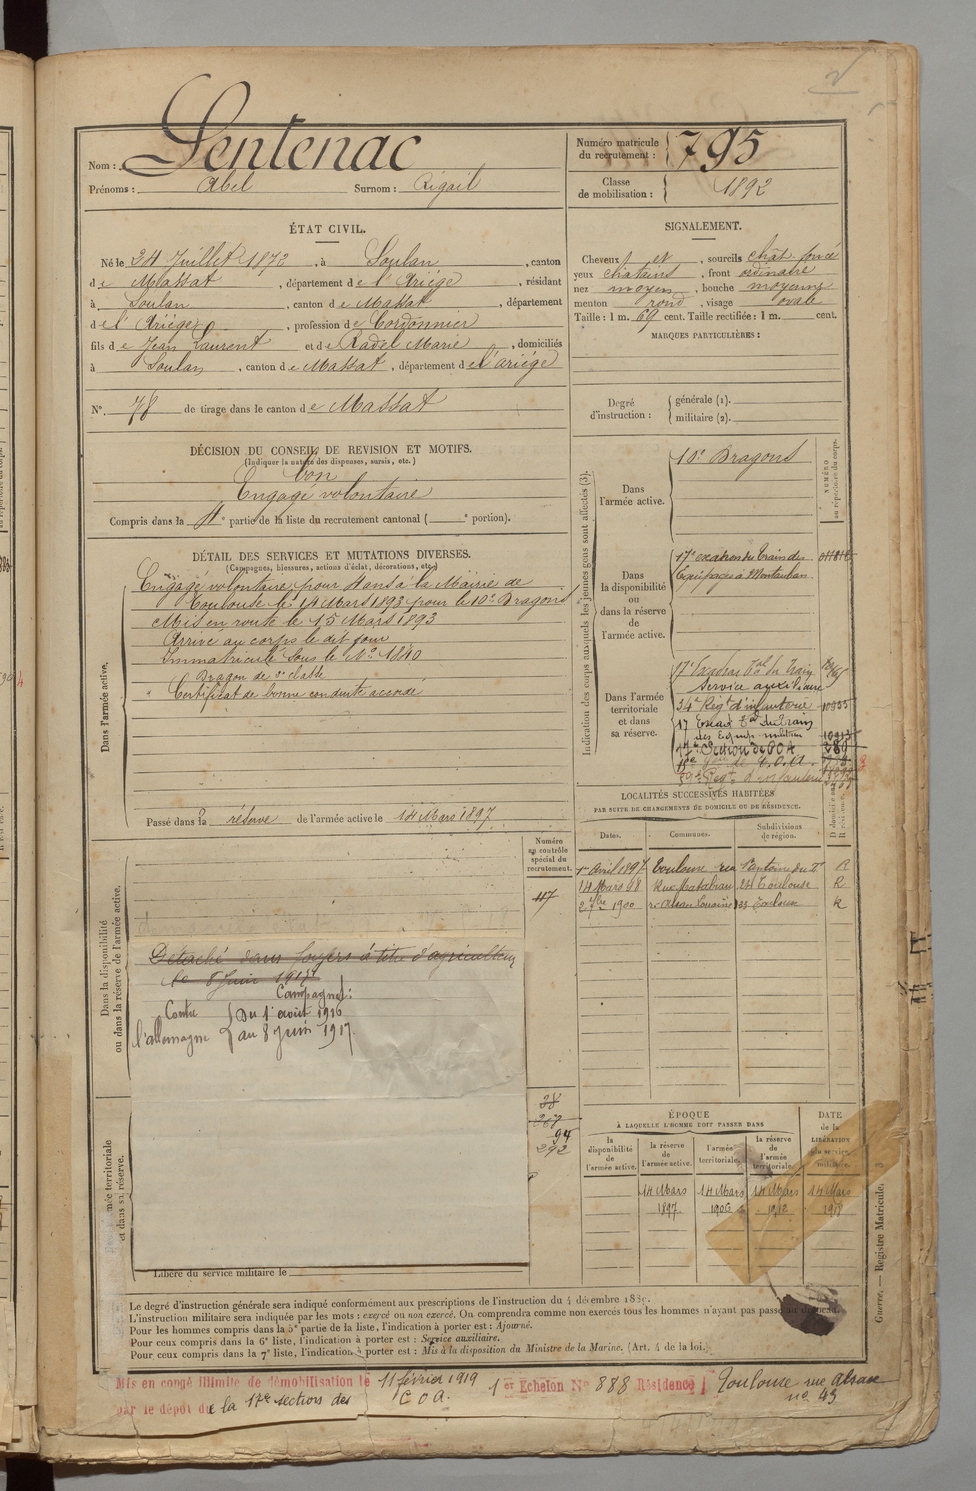 Nom : Sentenac
Prénoms : Abel Surnom : Rigail
Numéro matricule du recrutement : 795
Classe de mobilisation : 1892
ÉTAT CIVIL.
Né le 24 Juillet 1872, à Soulan, canton
de Massat, département de l'Ariège, résidant
à Soulan, canton de Massat, département
de l'Ariège, profession de Cordonnier
fils de Jean Laurent et de Radel Marie, domiciliés
à Soulan, canton de Massat, département de l'ariège
N°. 78 de tirage dans le canton de Massat
SIGNALEMENT.
Cheveux et, sourcils chât. foncé
yeux chatains, front ordinaire
nez moyen, bouche moyenne
menton rond, visage ovale
Taille : 1 m. 69 cent. Taille rectifiée : 1 m. cent.
MARQUES PARTICULIÈRES :
Degré d'instruction : générale (1).
militaire (2).
DÉCISION DU CONSEIL DE REVISION ET MOTIFS.
(Indiquer la nature des dispenses, sursis, etc.)
bon
Engagé volontaire
Compris dans la partie de la liste du recrutement cantonal ( portion).
DÉTAIL DES SERVICES ET MUTATIONS DIVERSES.
(Campagnes, blessures, actions d'éclat, décorations, etc.)
Dans l'armée active.
Engagé volontaire pour 4 ans à la Mairie de
Toulouse le 14 Mars 1893 pour le 10e Dragons
Mis en route le 15 Mars 1893
Arrivé au corps le dit jour
Immatriculé sous le No 1840
Dragon de 2e classe
Certificat de bonne conduite accordé
Passé dans la réserve de l'armée active le 14 Mars 1897
Indication des corps auxquels les jeunes gens sont affectés (3).
NUMÉRO au répertoire du corps.
Dans l'armée active.
10e Dragons
Dans la disponibilité ou dans la réserve de l'armée active.
17e escadron du train des
Equipages à Montauban
Dans l'armée territoriale et dans sa réserve.
17e Escadron Tal du Train
Service auxiliaire
34e Régt d'infanterie
17 Escad Tal du Train
des Equip. militaires
17e Section de COA
LOCALITÉS SUCCESSIVES HABITÉES
PAR SUITE DE CHANGEMENTS DE DOMICILE OU DE RÉSIDENCE.
Dates. Communes. Subdivisions de région.
1er Avril 1897 Toulouse R
14 Mars 98 Rue Matabiau 24 Toulouse R
1900 Toulouse R
Numéro au contrôle spécial du recrutement.
117
Dans la disponibilité ou dans la réserve de l'armée active.
Détaché dans foyers à titre d'agriculteur
le 8 Juin 1917
Campagnes :
Contre l'allemagne
Du 1er aout 1916
au 8 Juin 1917
mée territoriale et dans sa réserve.
38
267
94
292
Libéré du service militaire le
ÉPOQUE
À LAQUELLE L'HOMME DOIT PASSER DANS
la disponibilité de l'armée active.
la réserve de l'armée active.
l'armée territoriale.
la réserve de l'armée territoriale.
DATE de la LIBÉRATION du service militaire.
14 Mars 14 Mars 14 Mars 14 Mars
1897 1906 1912 1918
Guerre. — Registre Matricule.
Le degré d'instruction générale sera indiqué conformément aux prescriptions de l'instruction du 4 décembre 1889.
L'instruction militaire sera indiquée par les mots : exercé ou non exercé. On comprendra comme non exercés tous les hommes n'ayant pas passé au drapeau.
Pour les hommes compris dans la 5e partie de la liste, l'indication à porter est : Ajourné.
Pour ceux compris dans la 6e liste, l'indication à porter est : Service auxiliaire.
Pour ceux compris dans la 7e liste, l'indication à porter est : Mis à la disposition du Ministre de la Marine. (Art. 4 de la loi.)
Mis en congé illimité de démobilisation le 11 février 1919 1er Echelon No 888 Résidence Toulouse rue Alsace
par le dépôt de la 17e section des C O A. no 43